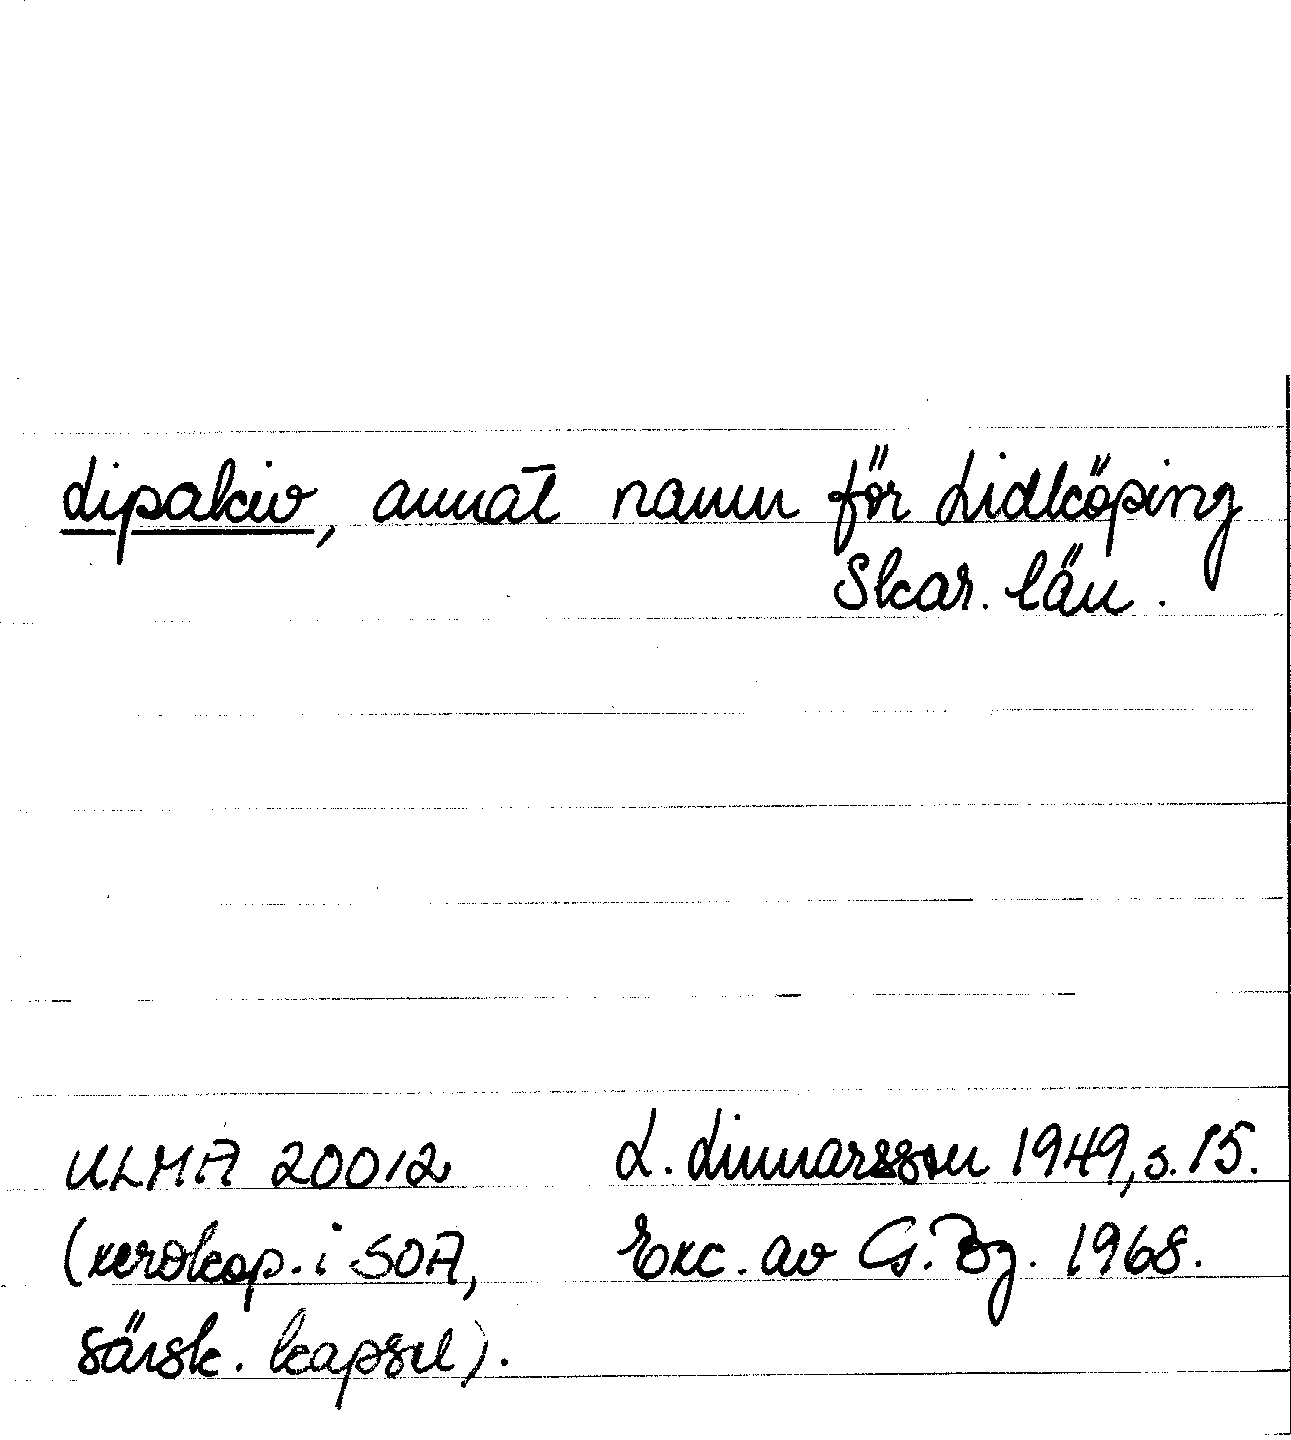 Lipakiv, annat namn för Lidköping
Skar. län.
ULMA 20012 L. Linnarsson 1949, s. 15.
(xerokop. i SOA, Exc. av G. Bg. 1968.
särsk. kapsel).